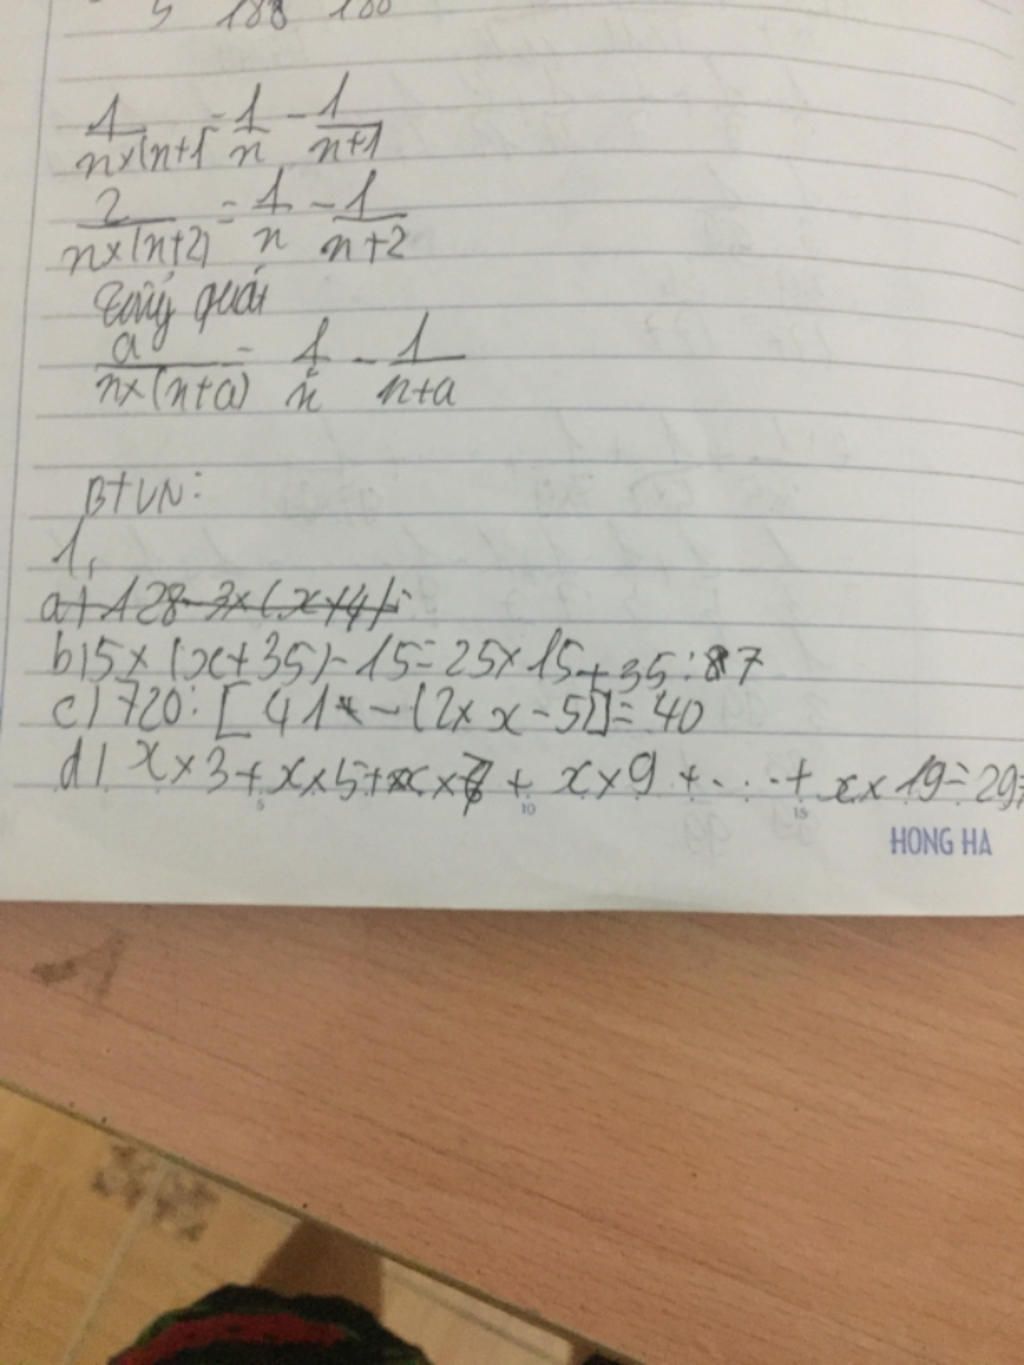 5 188 188
1/n×(n+1) = 1/n - 1/n+1
2/n×(n+2) = 1/n - 1/n+2
Tổng quái
a/n×(n+a) = 1/n - 1/n+a
BTVN:
1,
a) 128-3×(x+4)=
b) 5×(x+35)-15=25×15+35:7
c) 720:[41-(2×x-5)]=40
d) x×3+x×5+x×7+x×9+...+x×19=297
5 10 15
HONG HA